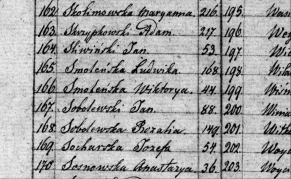 162. Skolimowska Maryanna. 216. 195.
163. Skrzypkowski Adam. 217. 196.
164. Śliwiński Jan. 53. 197.
165. Smoleńska Ludwika. 168. 198.
166. Smoleńska Wiktorya. 44. 199.
167. Sobolewski Jan. 88. 200.
168. Sobolewska Rozalia. 149. 201.
169. Sochacka Józefa 54. 202.
170. Sosnowska Anastazya. 36. 203.